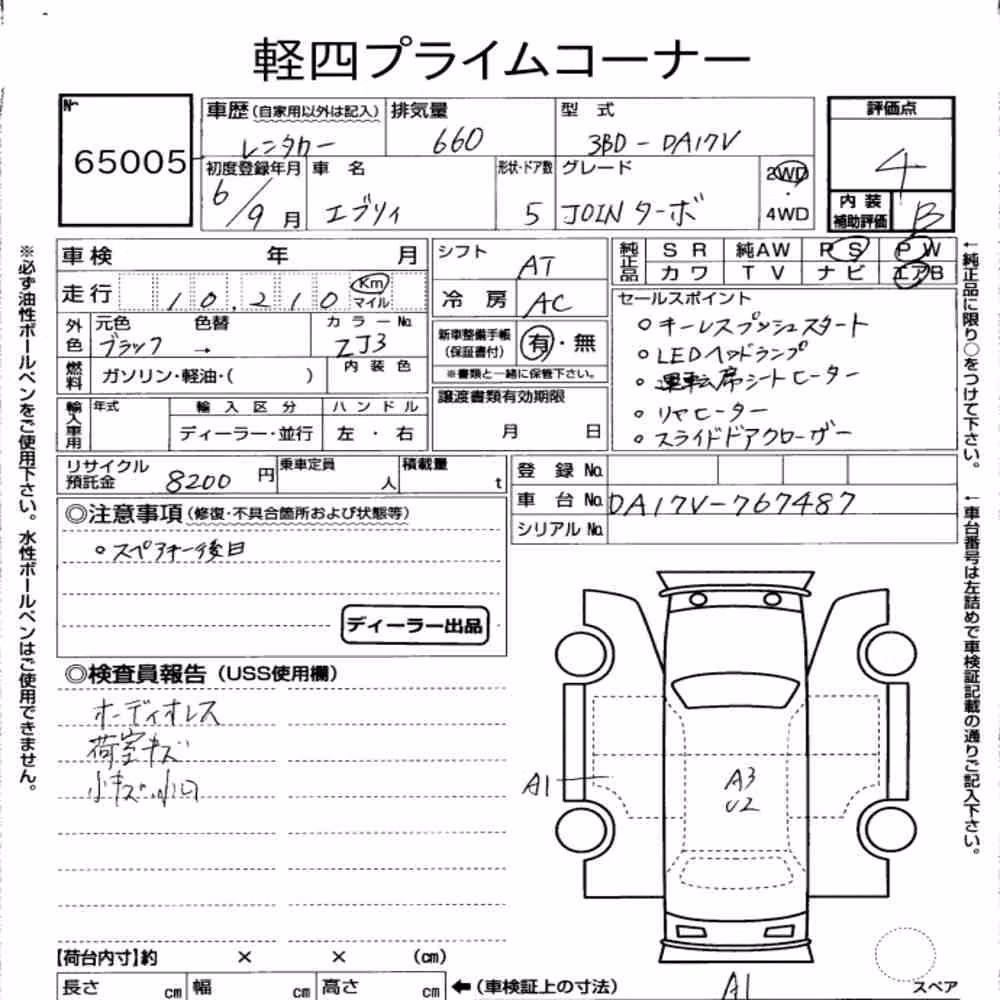 軽四プライムコーナー
№
65005
車歴(自家用以外は記入) 排気量 型 式
レンタカー 660 3BD-DA17V
初度登録年月 車 名 形状・ドア数 グレード
6/9 月 エブリィ 5 JOINターボ
2WD
・
4WD
評価点
4
内装
補助評価
B
車検 年 月
走行 10,210 Km
マイル
外色 元色 色替 カラー№
ブラック → ZJ3
燃料 ガソリン・軽油・( ) 内装色
輸入車用 年式 輸入区分 ハンドル
ディーラー・並行 左・右
シフト AT
冷房 AC
新車整備手帳
(保証書付) 有・無
※書類と一緒に保管下さい。
譲渡書類有効期限
月 日
純正品 SR 純AW PS PW
カワ TV ナビ エアB
セールスポイント
○キーレスプッシュスタート
○LEDヘッドランプ
○運転席シートヒーター
○リヤヒーター
○スライドドアクローザー
リサイクル
預託金 8200 円 乗車定員 人 積載量 t
登録 №
車台 № DA17V-767487
シリアル №
◎注意事項(修復・不具合箇所および状態等)
○スペアキー後日
ディーラー出品
◎検査員報告(USS使用欄)
オーディオレス
荷室キズ
小キズ・小凹
A1
A3
U2
A1
スペア
【荷台内寸】約 × × (cm)
長さ cm 幅 cm 高さ cm ←(車検証上の寸法)
※必ず油性ボールペンをご使用下さい。水性ボールペンはご使用できません。
←純正品に限り○をつけて下さい。
←車台番号は左詰めで車検証記載の通りご記入下さい。